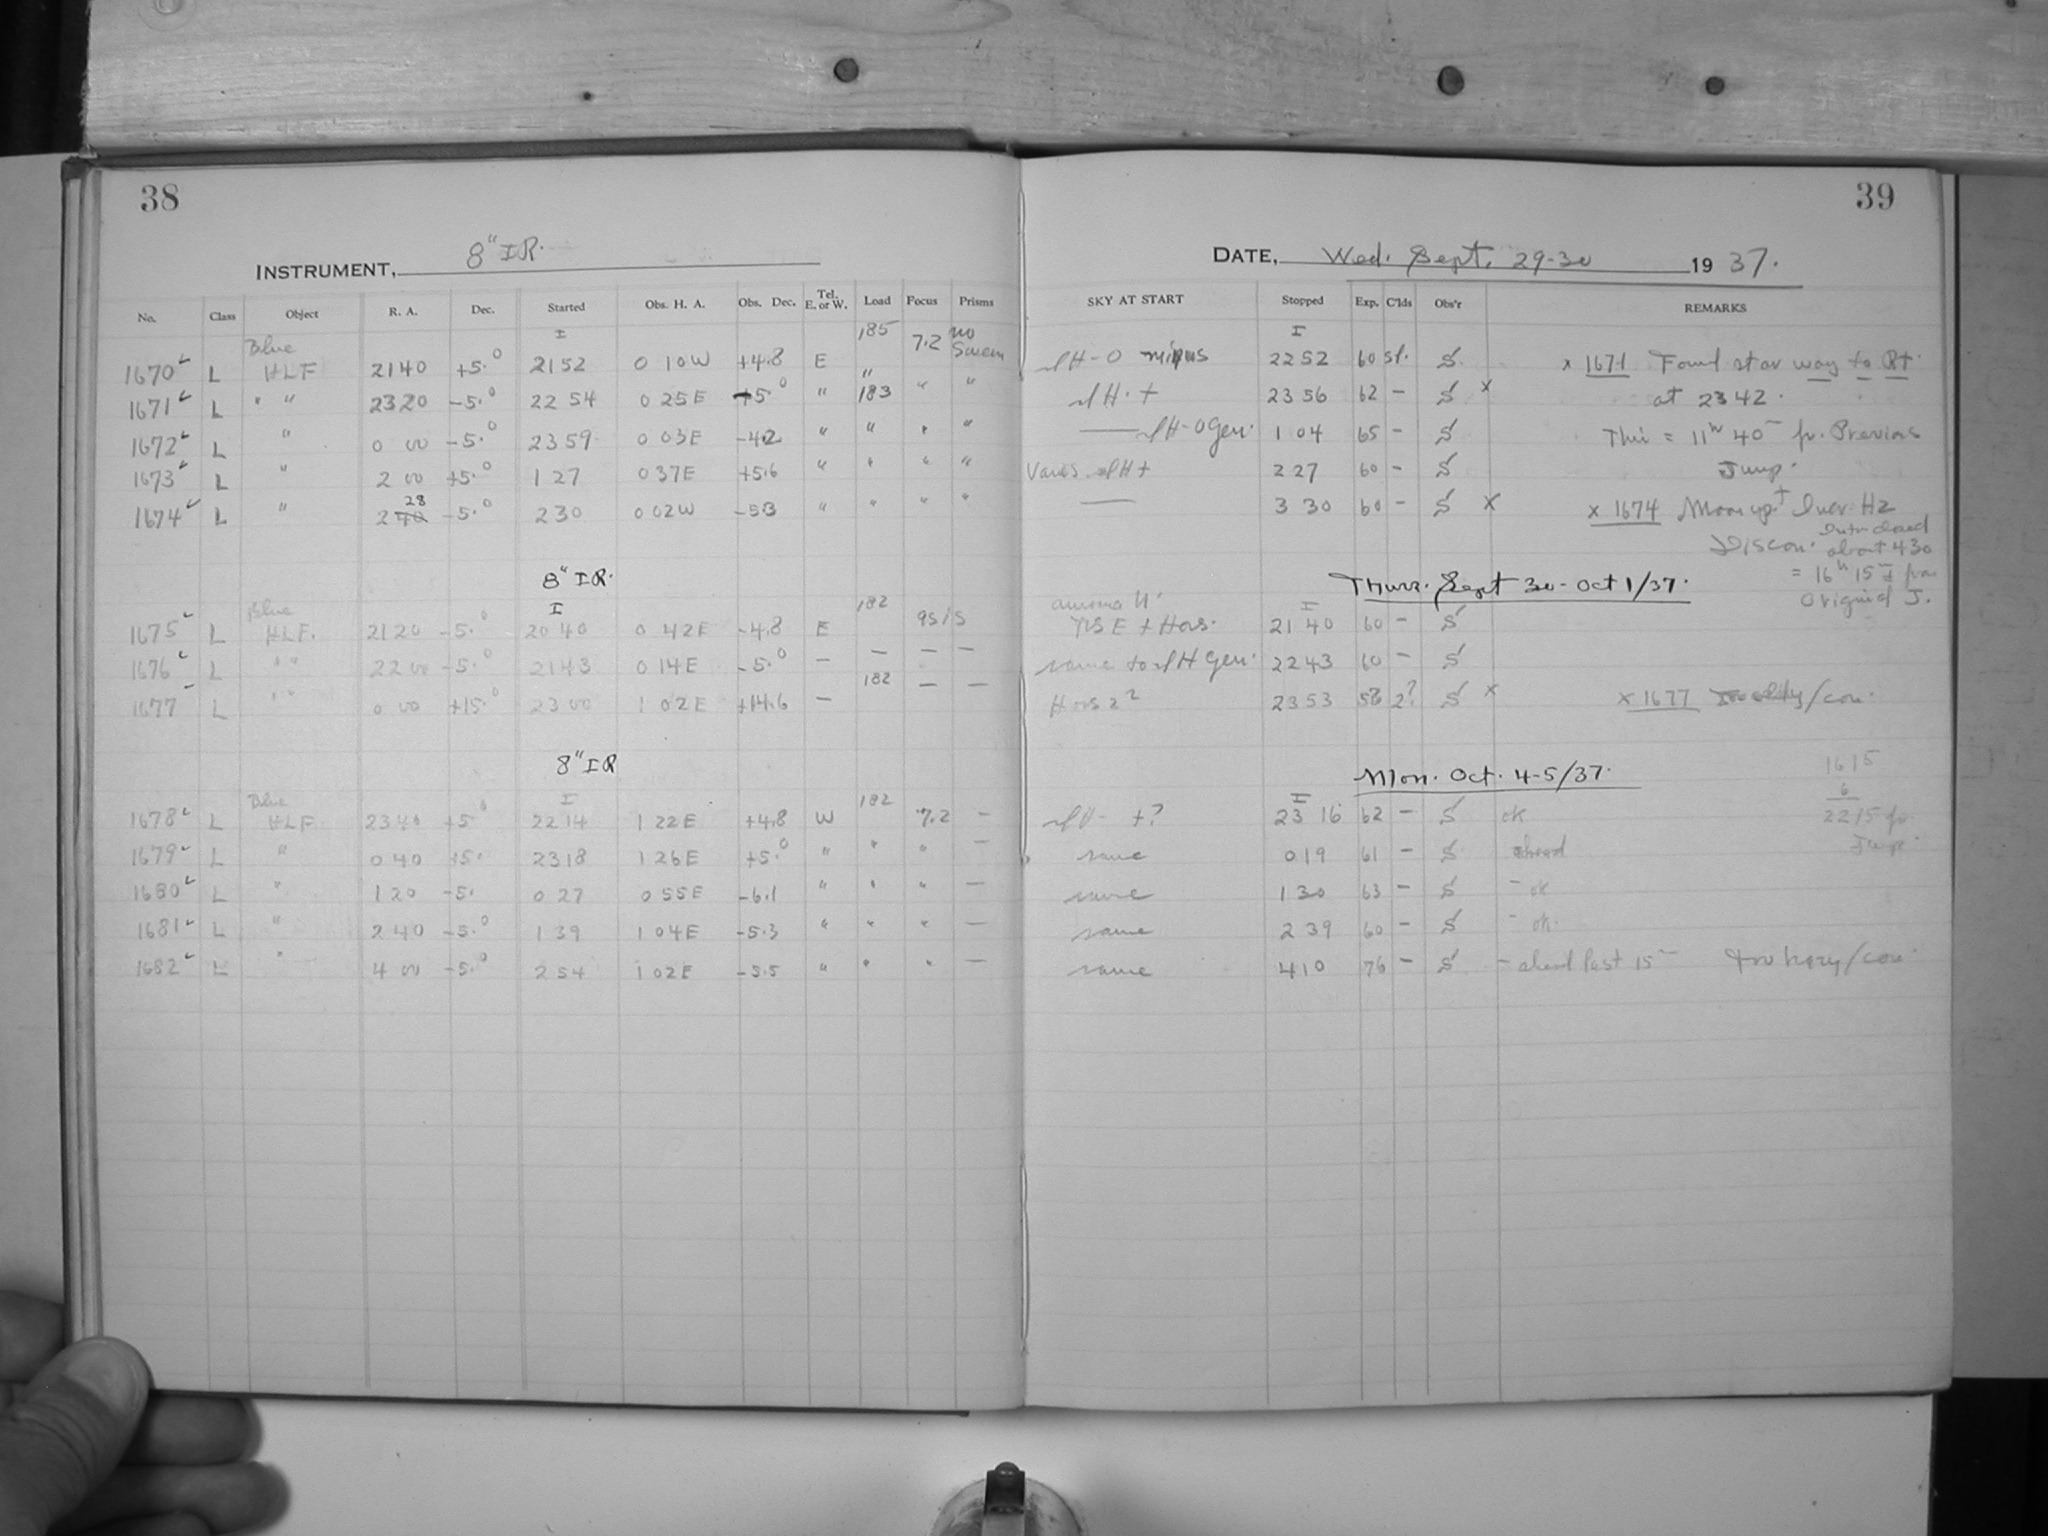 38
39
INSTRUMENT, 8" I R.
DATE, Wed. Sept. 29-30 1937.
No. Class Object R. A. Dec. Started Obs. H. A. Obs. Dec. Tel. E. or W. Load Focus Prisms SKY AT START Stopped Exp. C'lds Obs'r REMARKS
I I
1670 L Blue HLF 2140 +5.0 2152 0 10W +4.8 E 185 7.2 no Screen 2252 60 S
x 1671 Found star way to Rt.
1671 L " " 2320 -5.0 22 54 0 25E +5.0 " 183 " " 23 56 62 - S x
at 2342.
1672 L " 0 00 -5.0 2359 0 03E -4.2 " " " " 1 04 65 - S
This = 11h 40m fr. Previous
1673 L " 2 00 +5.0 1 27 0 37E +5.6 " " " " 2 27 60 - S
Jump.
1674 L " 2 28 -5.0 2 30 0 02W -5.3 " " " " — 3 30 60 - S x
x 1674 Moon up
Discon. about 430
8" I R.
Thurs. Sept 30 - Oct 1/37.
= 16h 15m
Original J.
I I
1675 L Blue HLF. 2120 -5.0 20 40 0 42E -4.8 E 182 21 40 60 - S
1676 L " " 22 00 -5.0 2143 0 14E -5.0 — — — — same to Gen. 2243 60 - S
1677 L " " 0 00 +15.0 23 00 1 02E +14.6 — 182 — — 2353 53 2? S x
x 1677
8" I R
Mon. Oct. 4-5/37.
1615
6
2215 fr.
Jump
I I
1678 L Blue HLF 2340 +5.0 2214 1 22E +4.8 W 182 7.2 - 23 16 62 - S ok
1679 L " 0 40 +5. 2318 1 26E +5.0 " " " — same 0 19 61 - S ahead
1680 L " 1 20 -5. 0 27 0 55E -6.1 " " " — same 1 30 63 - S - ok
1681 L " 2 40 -5.0 1 39 1 04E -5.3 " " " — same 2 39 60 - S - ok.
1682 L " 4 00 -5.0 2 54 1 02E -5.5 " " " — same 4 10 76 - S - ahead last 15m